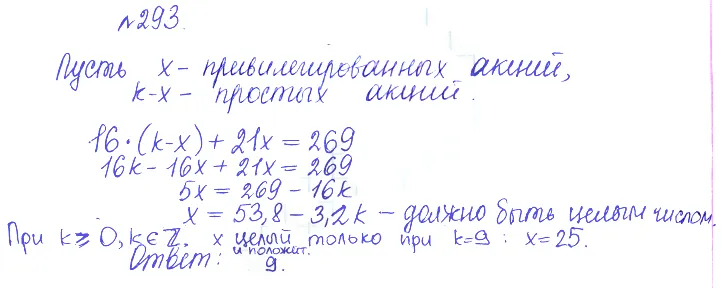 №293.
Пусть x - привилегированных акций,
k-x - простых акций.
16·(k-x) + 21x = 269
16k - 16x + 21x = 269
5x = 269 - 16k
x = 53,8 - 3,2k - должно быть целым числом.
При k ≥ 0, k∈Z, x целый и положит. только при k=9 : x=25.
Ответ: 9.